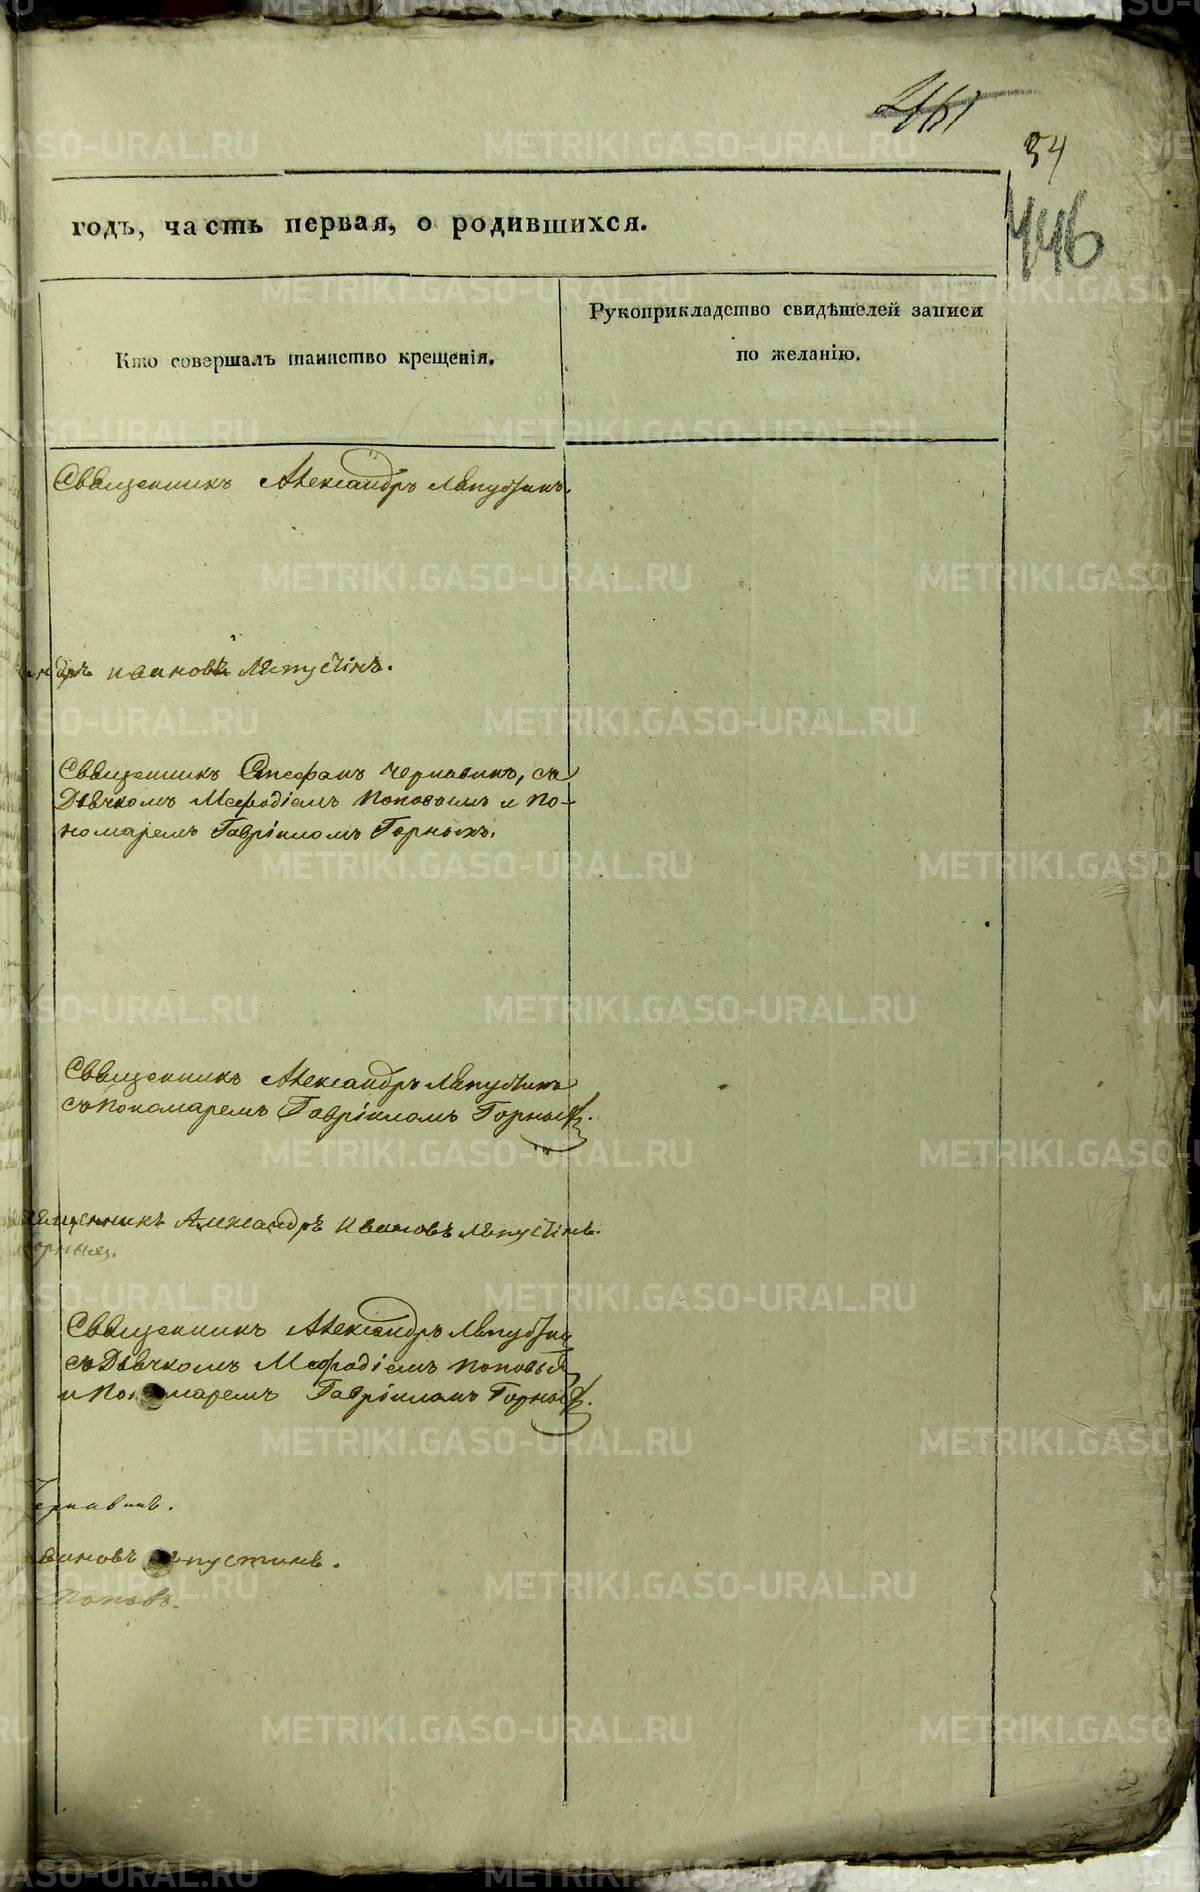 461
34
446
годъ, часть первая, о родившихся.
Кто совершалъ таинство крещенія.
Рукоприкладство свидѣтелей записи
по желанію.
Священникъ Александръ Ляпустинъ.
ндръ Ивановъ Ляпустинъ.
Священникъ Стефанъ Чернавинъ, съ
Дьячкомъ Мефодіемъ Поповымъ и По-
номаремъ Гавріиломъ Горныхъ.
Священникъ Александръ Ляпустинъ
съ Пономаремъ Гавріиломъ Горныхъ.
священникъ Александръ Ивановъ Ляпустинъ.
Священникъ Александръ Ляпустинъ
съ Дьячкомъ Мефодіемъ Поповым
и Пономаремъ Гавріиломъ Горныхъ.
Чернавинъ.
вановъ Ляпустинъ.
Поповъ.
METRIKI.GASO-URAL.RU